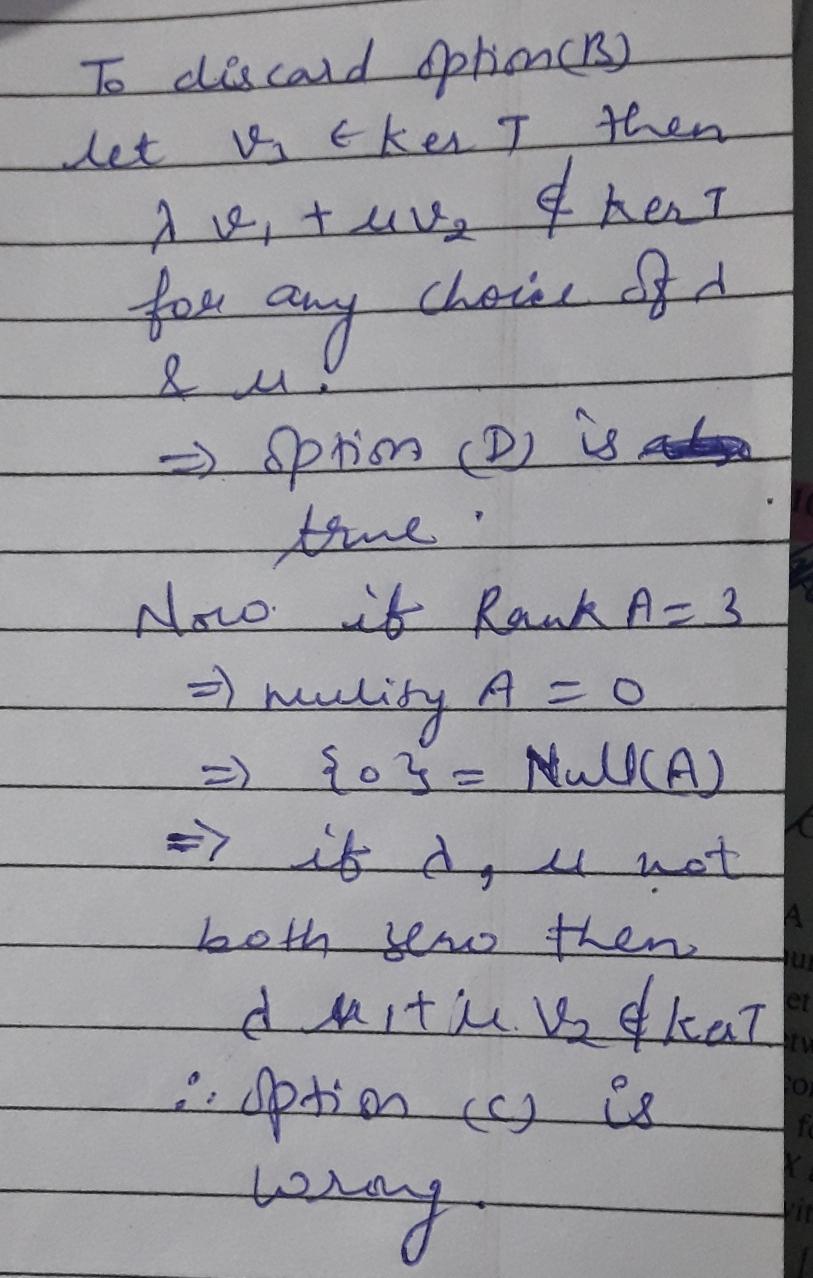 To discard option(B)
let v₃ ∈ ker T then
λ v₁ + μv₂ ∉ ker T
for any choice of λ
& μ.
⇒ option (D) is
true.
Now if Rank A = 3
⇒ nullity A = 0
⇒ {0} = Null(A)
⇒ if λ, μ not
both zero then
λ v₁ + μ v₂ ∉ ker T
∴ option (C) is
wrong.